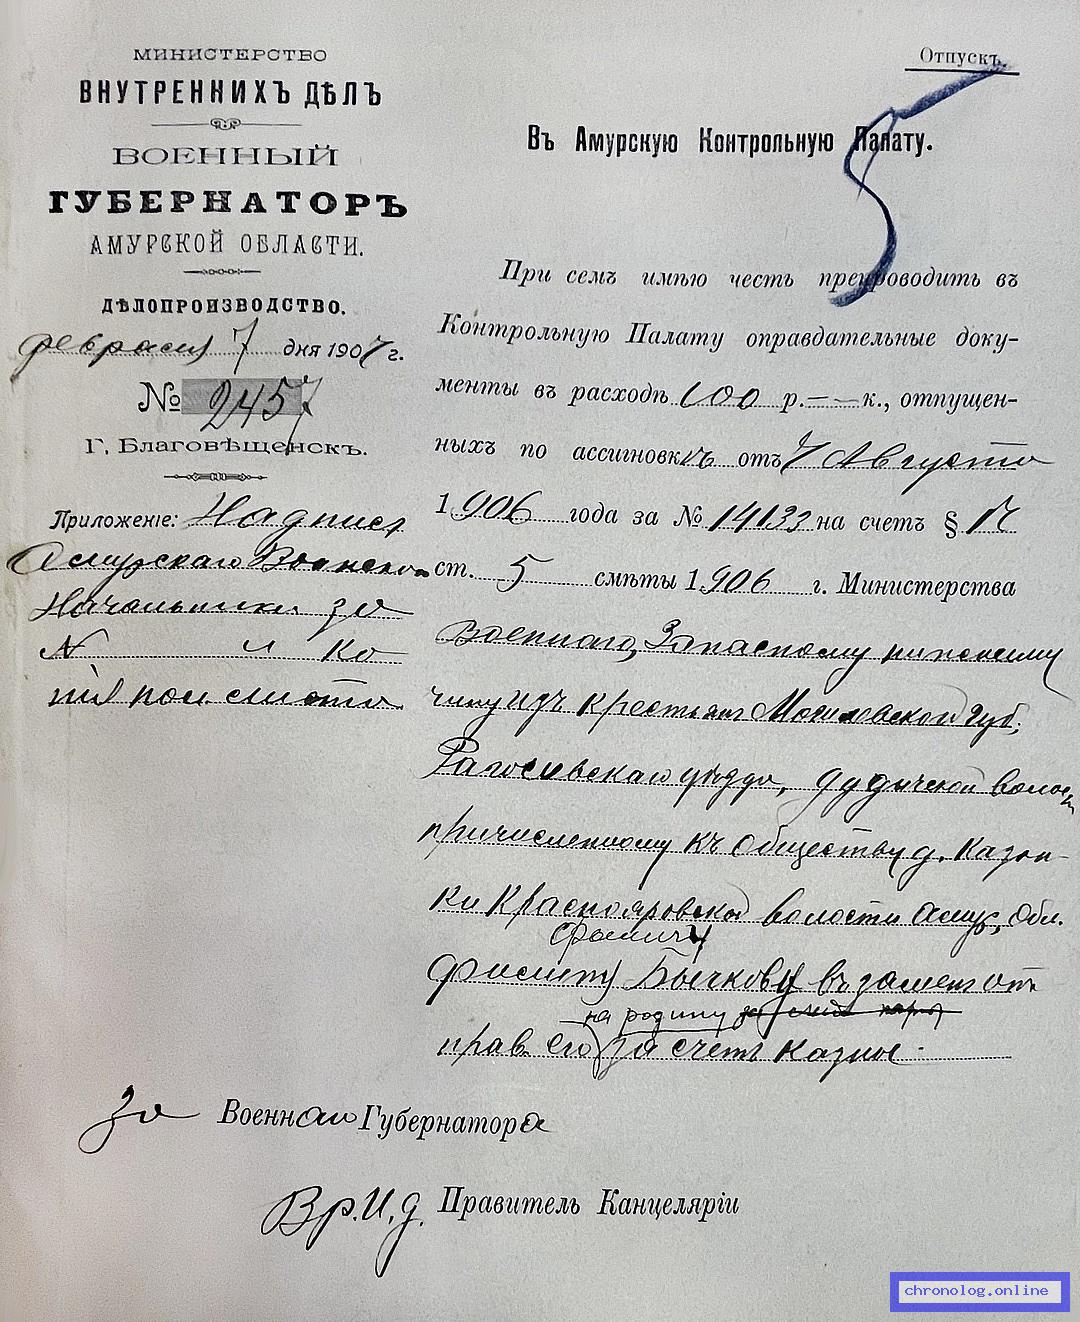 МИНИСТЕРСТВО
ВНУТРЕННИХЪ ДѢЛЪ
ВОЕННЫЙ
ГУБЕРНАТОРЪ
АМУРСКОЙ ОБЛАСТИ.
ДѢЛОПРОИЗВОДСТВО.
февраля 7 дня 1907 г.
№ 2457
Г. Благовѣщенскъ.
Приложеніе: Надпись
Амурскаго Воинского
Начальника за
№ и ко
пія
Отпускъ.
5
Въ Амурскую Контрольную Палату.
При семъ имѣю честь препроводить въ
Контрольную Палату оправдательные доку-
менты въ расходѣ 100 р. — — к., отпущен-
ныхъ по ассигновкѣ отъ 7 Августа
1906 года за № 14133 на счетъ §
ст. 5 смѣты 1906 г. Министерства
Военнаго, Запасному нижнему
чину изъ крестьян Могилевской губ.,
уѣзда, волости
причисленному къ обществу д. Казан-
ки Краснояровской волости Амур. Обл.
семьи
Филиппу Бычкову въ замен от
на родину
прав. его за счетъ казны.
За Военнаго Губернатора
Вр. И. д. Правитель Канцеляріи
chronolog.online